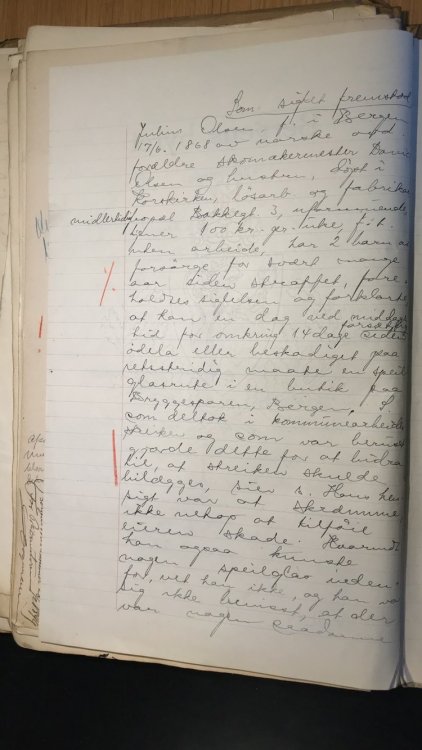 Som sigtet fremstod
Julius Olsen, f. i Bergen
17/6. 1868 av norske
forældre skomakermester
Olsen og hustru, døpt i
Korskirken, løsarb. og
midlertidig bopæl Bakkegt 3, uformuende
tjener 100 kr. pr. uke, f.t.
uten arbeide, har 2 barn at
forsørge for svært mange
aar siden straffet, fore-
holdtes sigtelsen og forklarte
at han en dag ved middags-
tid for omkring 14 dage siden forsætlig
ødela eller beskadiget paa
retsstridig maate en speil
glasrute i en butik paa
Bryggesporen, Bergen. S.
som deltok i kommunearbeider
streiken og som var beruset
gjorde dette for at bidra
til, at streiken skulde
bilægges, sier s. Hans hen-
sigt var at skræmme
ikke netop at tilføie
eieren skade. Hvorvidt
han ogsaa knuste
nogen speilglas inden-
for, vet han ikke, og han var
sig ikke bevisst, at der
var nogen